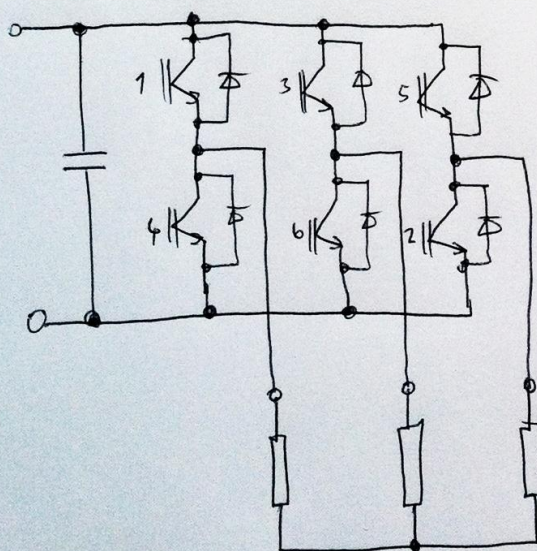 1 3 5
4 6 2